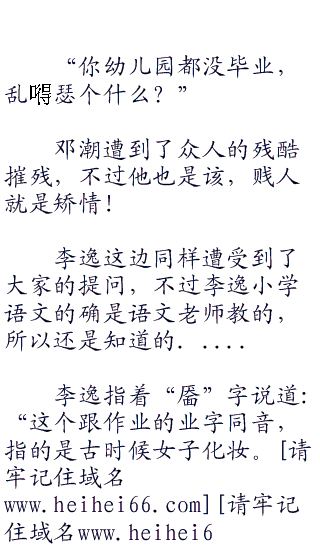 “你幼儿园都没毕业，
乱嘚瑟个什么？”
邓潮遭到了众人的残酷
摧残，不过他也是该，贱人
就是矫情！
李逸这边同样遭受到了
大家的提问，不过李逸小学
语文的确是语文老师教的，
所以还是知道的．....
李逸指着“靥”字说道：
“这个跟作业的业字同音，
指的是古时候女子化妆。[请
牢记住域名
www.heihei66.com][请牢记
住域名www.heihei6